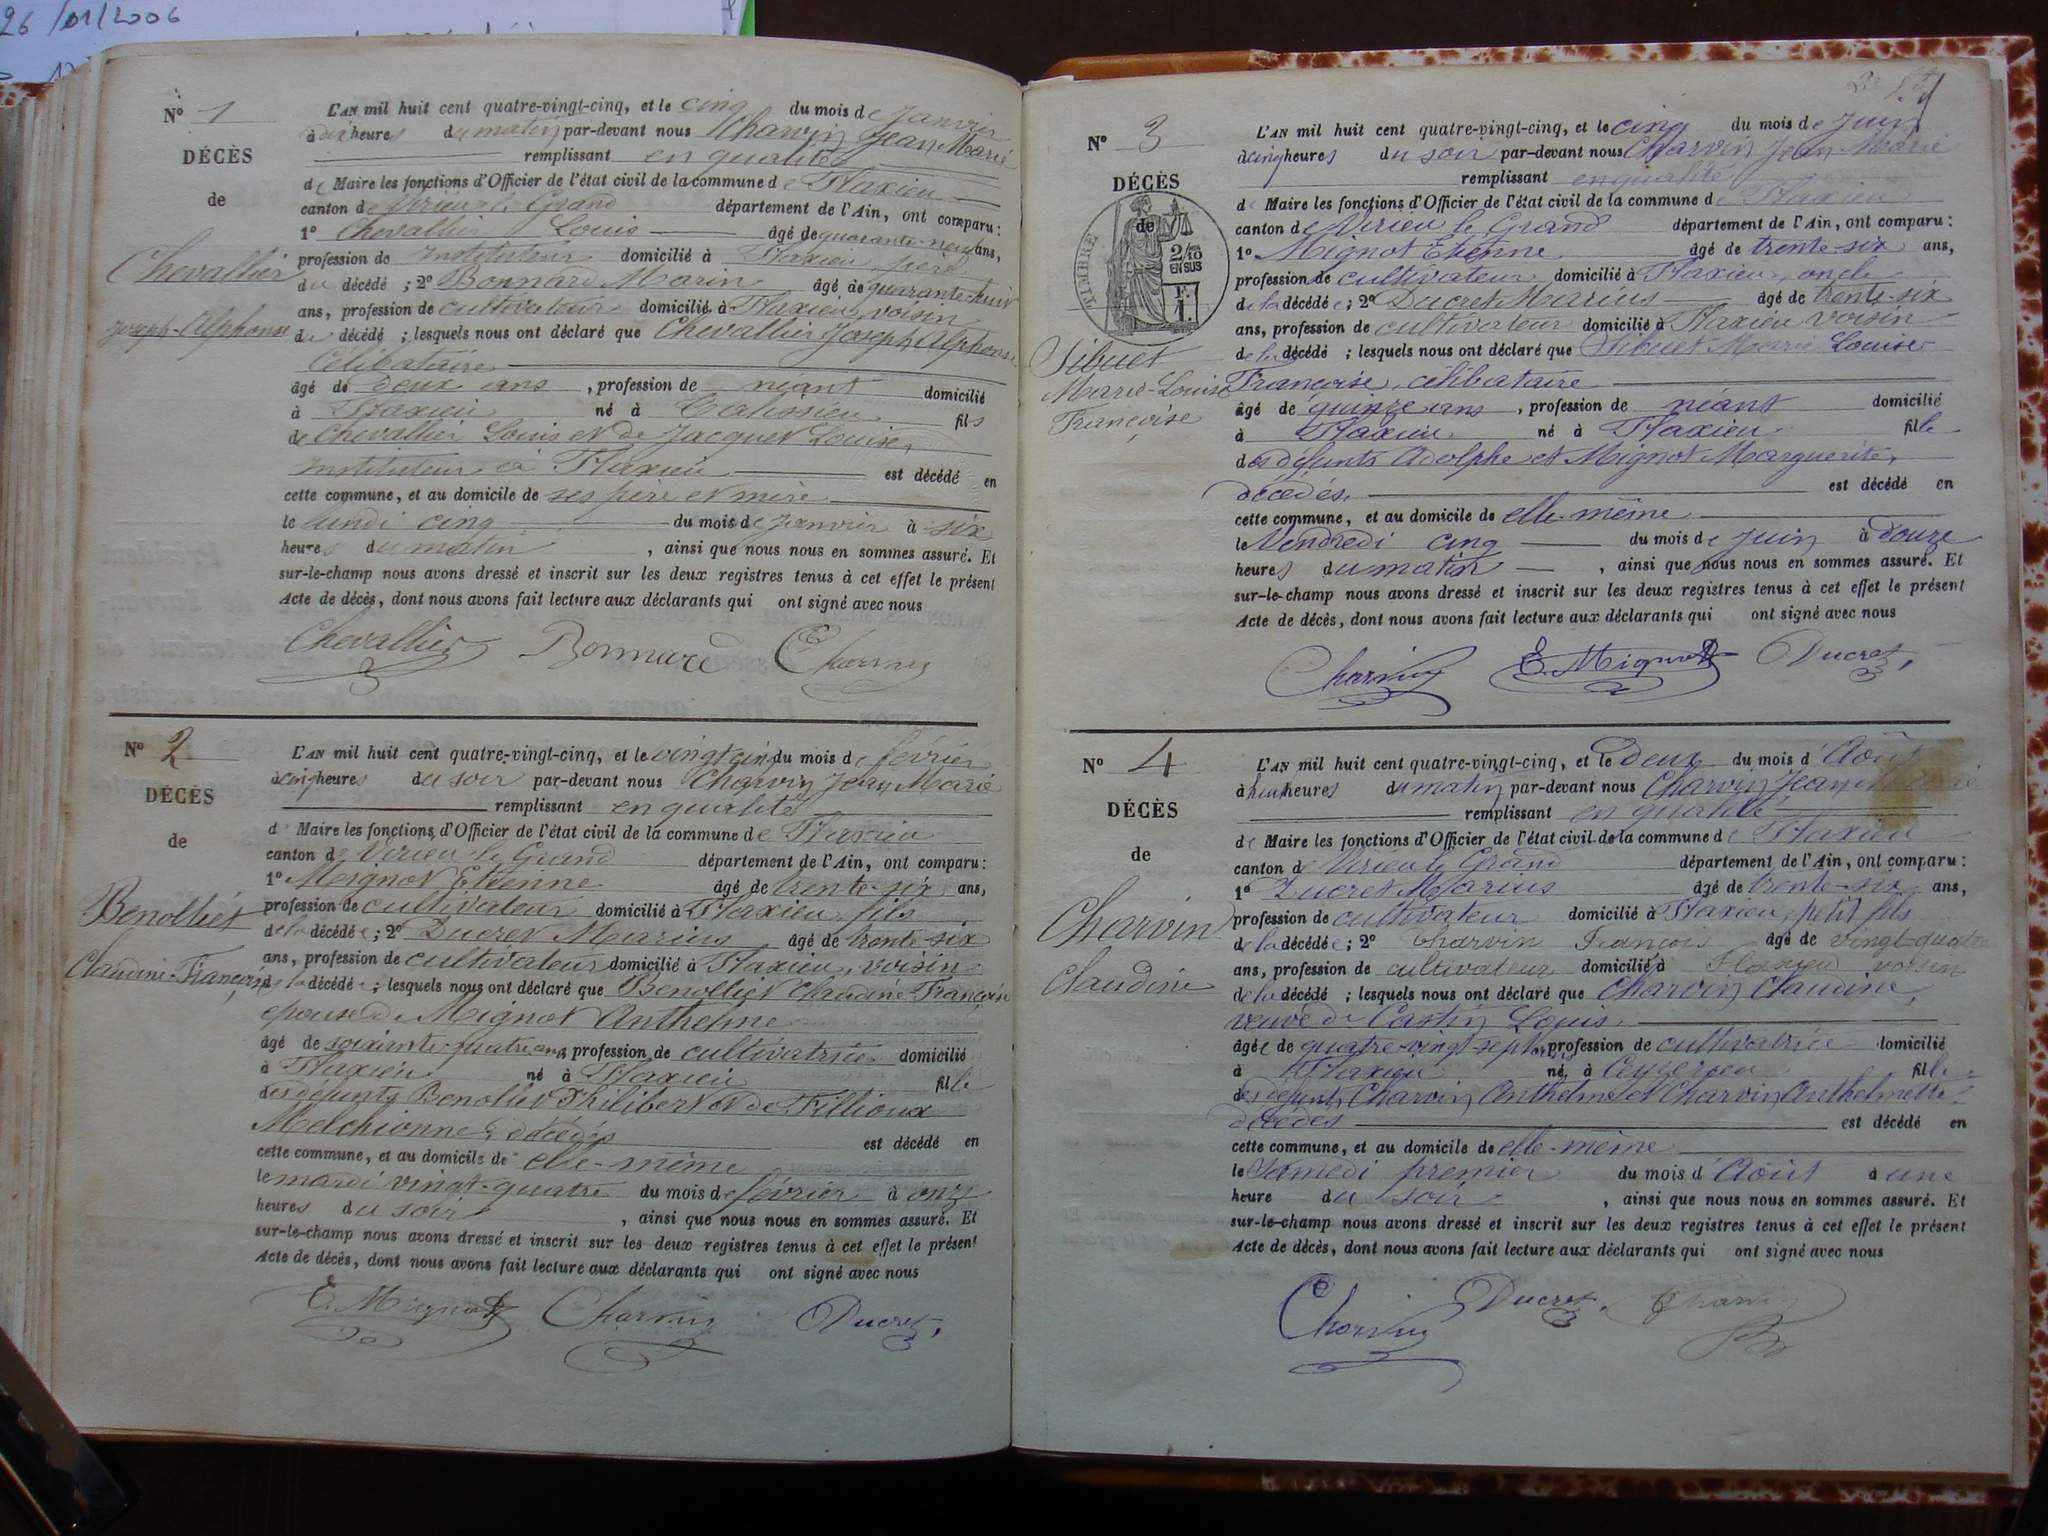 26/01/2006
N° 1
DÉCÈS
de
Chevallier
Joseph-Alphonse
L'AN mil huit cent quatre-vingt-cinq, et le cinq du mois de Janvier
à dix heures du matin par-devant nous Charvin Jean Marie
remplissant en qualité
de Maire les fonctions d'Officier de l'état civil de la commune de Flaxieu
canton de Virieu le Grand département de l'Ain, ont comparu :
1° Chevallier Louis âgé de quarante-neuf ans,
profession de Instituteur domicilié à Flaxieu, père
du décédé ; 2° Bonnard Marin âgé de quarante-huit
ans, profession de cultivateur domicilié à Flaxieu, voisin
du décédé ; lesquels nous ont déclaré que Chevallier Joseph Alphonse
Célibataire
âgé de deux ans , profession de néant domicilié
à Flaxieu né à Talissieu fils
de Chevallier Louis et de Jacquet Louise,
Instituteur à Flaxieu est décédé en
cette commune, et au domicile de ses père et mère
le lundi cinq du mois de Janvier à six
heures du matin , ainsi que nous nous en sommes assuré. Et
sur-le-champ nous avons dressé et inscrit sur les deux registres tenus à cet effet le présent
Acte de décès, dont nous avons fait lecture aux déclarants qui ont signé avec nous
Chevallier Bonnard Charvin
N° 2
DÉCÈS
de
Benolliet
Claudine-Françoise
L'AN mil huit cent quatre-vingt-cinq, et le vingt cinq du mois de février
à cinq heures du soir par-devant nous Charvin Jean Marie
remplissant en qualité
d Maire les fonctions d'Officier de l'état civil de la commune de Flaxieu
canton de Virieu le Grand département de l'Ain, ont comparu :
1° Mignot Etienne âgé de trente-six ans,
profession de cultivateur domicilié à Flaxieu, fils
de la décédée ; 2° Ducret Marius âgé de trente-six
ans, profession de cultivateur domicilié à Flaxieu, voisin
de la décédée ; lesquels nous ont déclaré que Benolliet Claudine Françoise
épouse de Mignot Anthelme
âgé de soixante-quatre ans, profession de cultivatrice domicilié
à Flaxieu né à Flaxieu fille
des défunts Benolliet Philibert et de Fillioux
Melchionne, décédés est décédé en
cette commune, et au domicile de elle-même
le mardi vingt-quatre du mois de février à onze
heures du soir , ainsi que nous nous en sommes assuré. Et
sur-le-champ nous avons dressé et inscrit sur les deux registres tenus à cet effet le présent
Acte de décès, dont nous avons fait lecture aux déclarants qui ont signé avec nous
E. Mignot Charvin Ducret
N° 3
DÉCÈS
de
TIMBRE
2/10
EN SUS
F.
1.
Sibuet
Marie-Louise
Françoise
L'AN mil huit cent quatre-vingt-cinq, et le cinq du mois de Juin
à cinq heures du soir par-devant nous Charvin Jean-Marie
remplissant en qualité
de Maire les fonctions d'Officier de l'état civil de la commune de Flaxieu
canton de Virieu le Grand département de l'Ain, ont comparu :
1° Mignot Etienne âgé de trente-six ans,
profession de cultivateur domicilié à Flaxieu, oncle
de la décédée ; 2° Ducret Marius âgé de trente-six
ans, profession de cultivateur domicilié à Flaxieu voisin
de la décédé ; lesquels nous ont déclaré que Sibuet Marie Louise
Françoise, célibataire
âgé de quinze ans , profession de néant domicilié
à Flaxieu né à Flaxieu fille
des défunts Adolphe et Mignot Marguerite,
décédés, est décédé en
cette commune, et au domicile de elle-même
le Vendredi cinq du mois de Juin à douze
heures du matin , ainsi que nous nous en sommes assuré. Et
sur-le-champ nous avons dressé et inscrit sur les deux registres tenus à cet effet le présent
Acte de décès, dont nous avons fait lecture aux déclarants qui ont signé avec nous
Charvin E. Mignot Ducret
N° 4
DÉCÈS
de
Charvin
Claudine
L'AN mil huit cent quatre-vingt-cinq, et le Deux du mois d'Août
à huit heures du matin par-devant nous Charvin Jean Marie
remplissant en qualité
de Maire les fonctions d'Officier de l'état civil de la commune de Flaxieu
canton de Virieu le Grand département de l'Ain, ont comparu :
1° Ducret Marius âgé de trente-six ans,
profession de cultivateur domicilié à Flaxieu, petit fils
de la décédée ; 2° Charvin François âgé de vingt-quatre
ans, profession de cultivateur domicilié à Flaxieu voisin
de la décédé ; lesquels nous ont déclaré que Charvin Claudine,
veuve de Castin Louis
âgée de quatre-vingt-sept ans profession de cultivatrice domicilié
à Flaxieu né à Ceyzerieu fille
des défunts Charvin Anthelme et Charvin Anthelmette
décédés est décédé en
cette commune, et au domicile de elle-même
le Samedi premier du mois d'Août à une
heure du soir , ainsi que nous nous en sommes assuré. Et
sur-le-champ nous avons dressé et inscrit sur les deux registres tenus à cet effet le présent
Acte de décès, dont nous avons fait lecture aux déclarants qui ont signé avec nous
Charvin Ducret Charvin